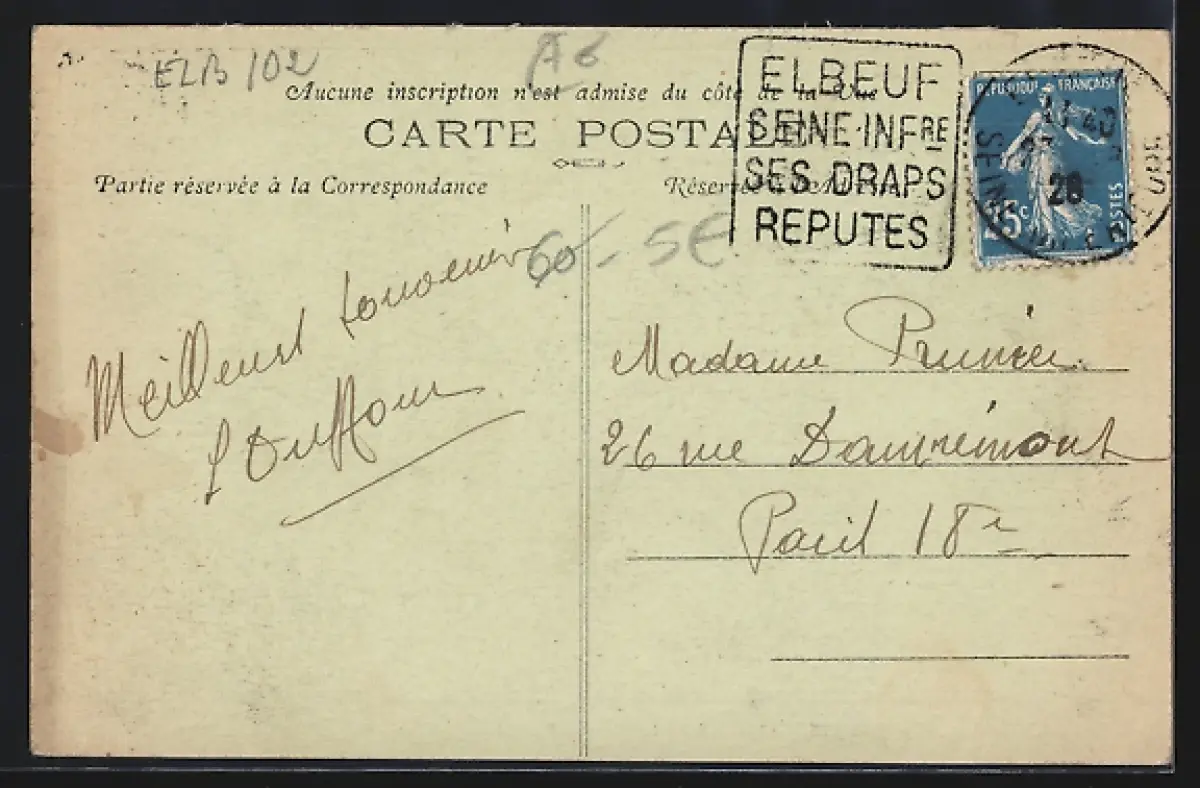 ELB 102
A6
Aucune inscription n'est admise du côté de la Vue
CARTE POSTALE
Partie réservée à la Correspondance
Réservé
ELBEUF
SEINE-INFRE
SES DRAPS
REPUTES
REPUBLIQUE FRANÇAISE
25c
POSTES
SEINE
26
60 - 5€
Meilleurs souvenirs
L Duffour
Madame Prunier
26 rue Damrémont
Paris 18e